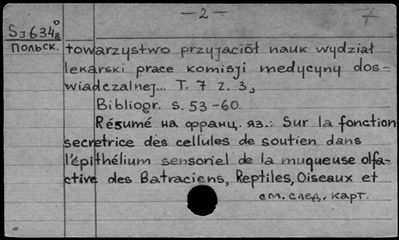 — 2 —
Sj634 8
ПОЛЬСК.
towarzystwo przyjaciół nauk wydział
lekarski prace komisji medycyny dos-
wiadczalnej... T. 7 Z. 3,
Bibliogr. s. 53-60.
Résumé на франц. яз.: Sur la fonction
secretrice des cellules de soutien dans
l'épithélium sensoriel de la muqueuse olfa-
ctive des Batraciens, Reptiles, Oiseaux et
см. след. карт.